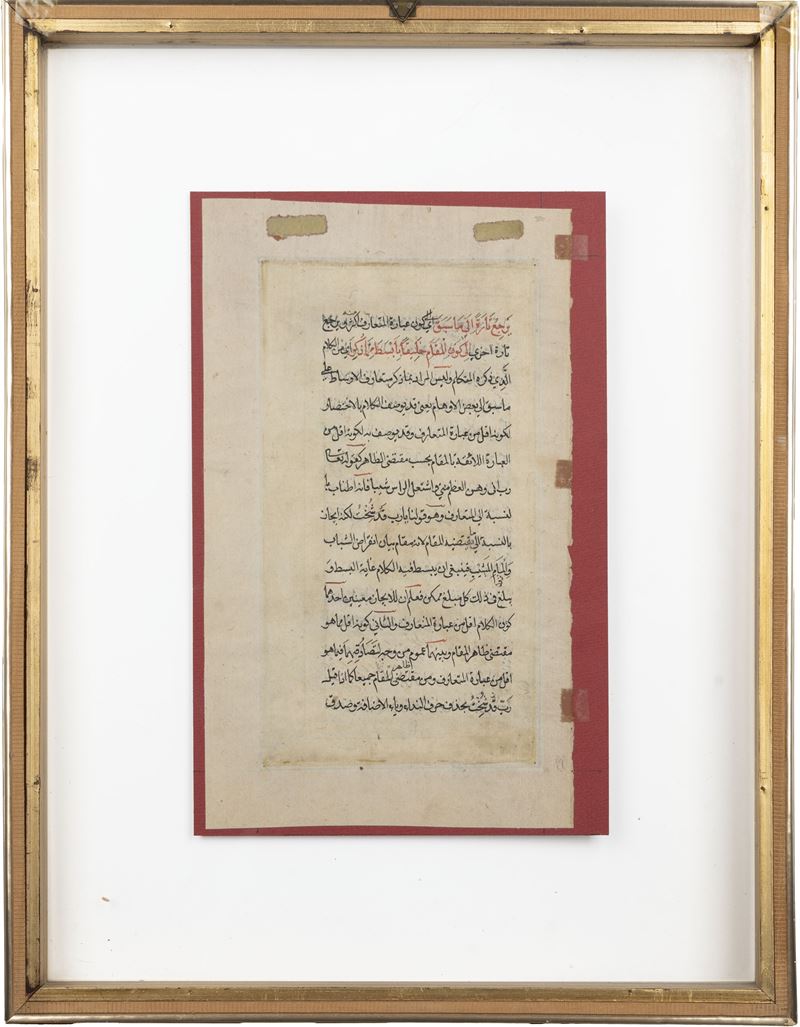 يرجع تارة الى ما سبق اي كون عبارة المتعارف اكثر ويرجع
تارة اخرى الى كون المقام خليقا بابسط مما ذكر اي من الكلام
الذي ذكره المتكلم وليس المراد بما ذكر متعارف الاوساط على
ما سبق الى بعض الاوهام يعني قد يوصف الكلام بالاختصار
لكونه اقل من عبارة المتعارف وقد يوصف به لكونه اقل من
العبارة اللائقة بالمقام بحسب مقتضى الظاهر كقوله تعالى
رب اني وهن العظم مني واشتعل الراس شيبا فانه اطناب با
لنسبة الى المتعارف وهو قولنا يارب قد شخت لكنه ايجاز
بالنسبة الى ما يقتضيه المقام لانه مقام بيان انقراض الشباب
والمام المشيب فينبغي ان يبسط فيه الكلام غاية البسط و
يبلغ في ذلك كل مبلغ ممكن فعلم ان للايجاز معنيين احدهما
كون الكلام اقل من عبارة المتعارف والثاني كونه اقل مما هو
مقتضى ظاهر المقام وبينهما عموم من وجه لتصادقهما فيما هو
اقل من عبارة المتعارف ومن مقتضى ظاهر المقام جميعا كما اذا قيل
رب قد شخت بحذف حرف النداء وياء الاضافة وصدق